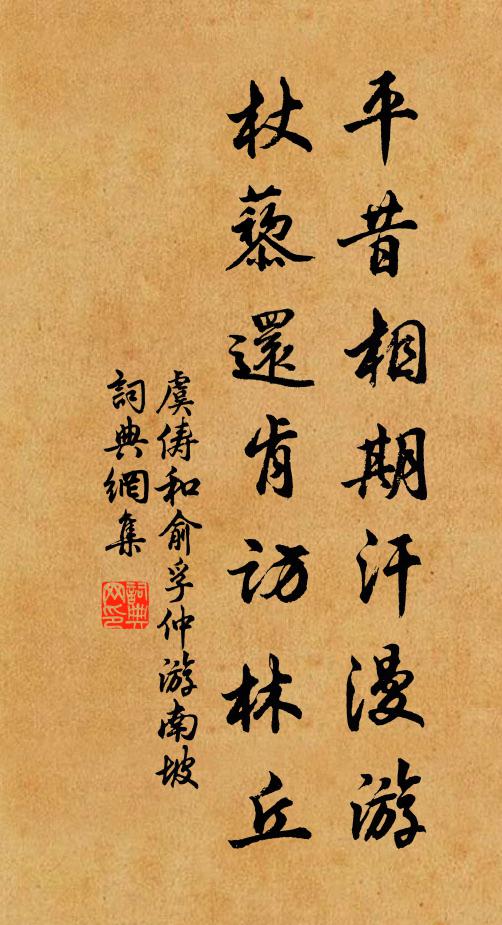 平昔相期汗漫游
杖藜還肯訪林丘
虞儔和俞孚仲游南坡
詞典網集
詞典网印